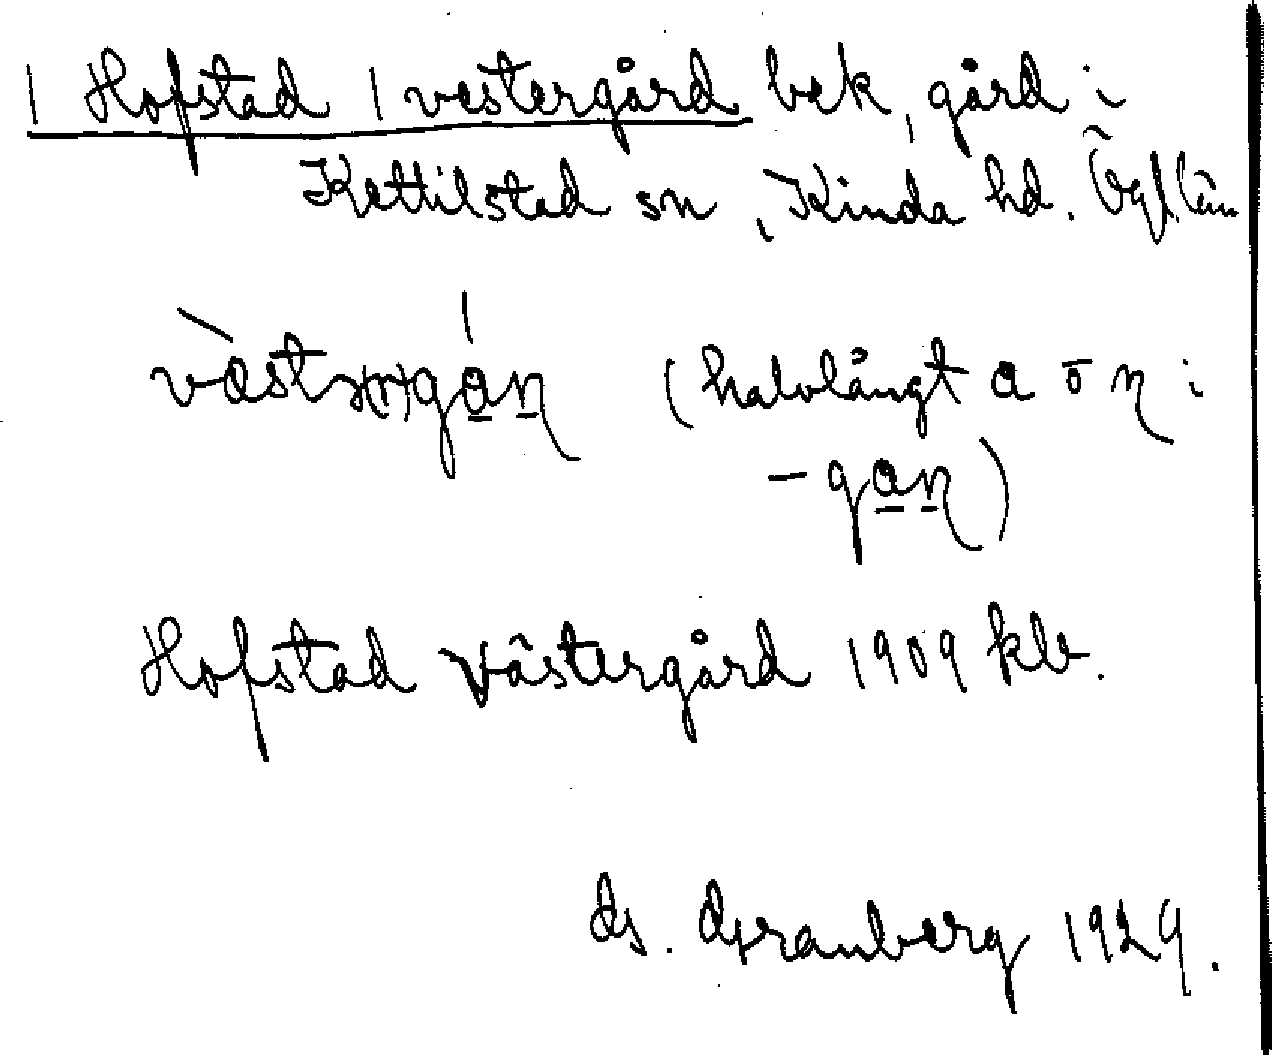 | Hofstad | vestergård bek, gård i
Kettilstad sn, Kinda hd. Ögl. län
vàstə(r)gáṉ (halvlångt a o n i
- gaṉ)
Hofstad Västergård 1909 klb.
ds. Granberg 1929.